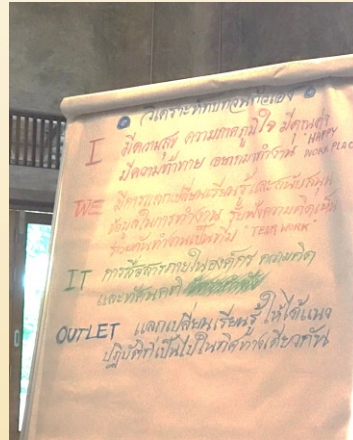 วิเคราะห์ทบทวนตัวเอง
I มีความสุข ความภาคภูมิใจ มีคุณค่า
มีความท้าทาย อยากมาทำงาน "HAPPY WORK PLACE
WE มีการแลกเปลี่ยนเรียนรู้และสนับสนุน
ข้อมูลในการทำงาน รับฟังความคิดเห็น
ร่วมกันทำงานเป็นทีม "TEAM WORK"
IT การสื่อสารภายในองค์กร ความคิด
และทัศนคติ
OUTLET แลกเปลี่ยนเรียนรู้ ให้ได้แนว
ปฏิบัติที่เป็นไปในทิศทางเดียวกัน